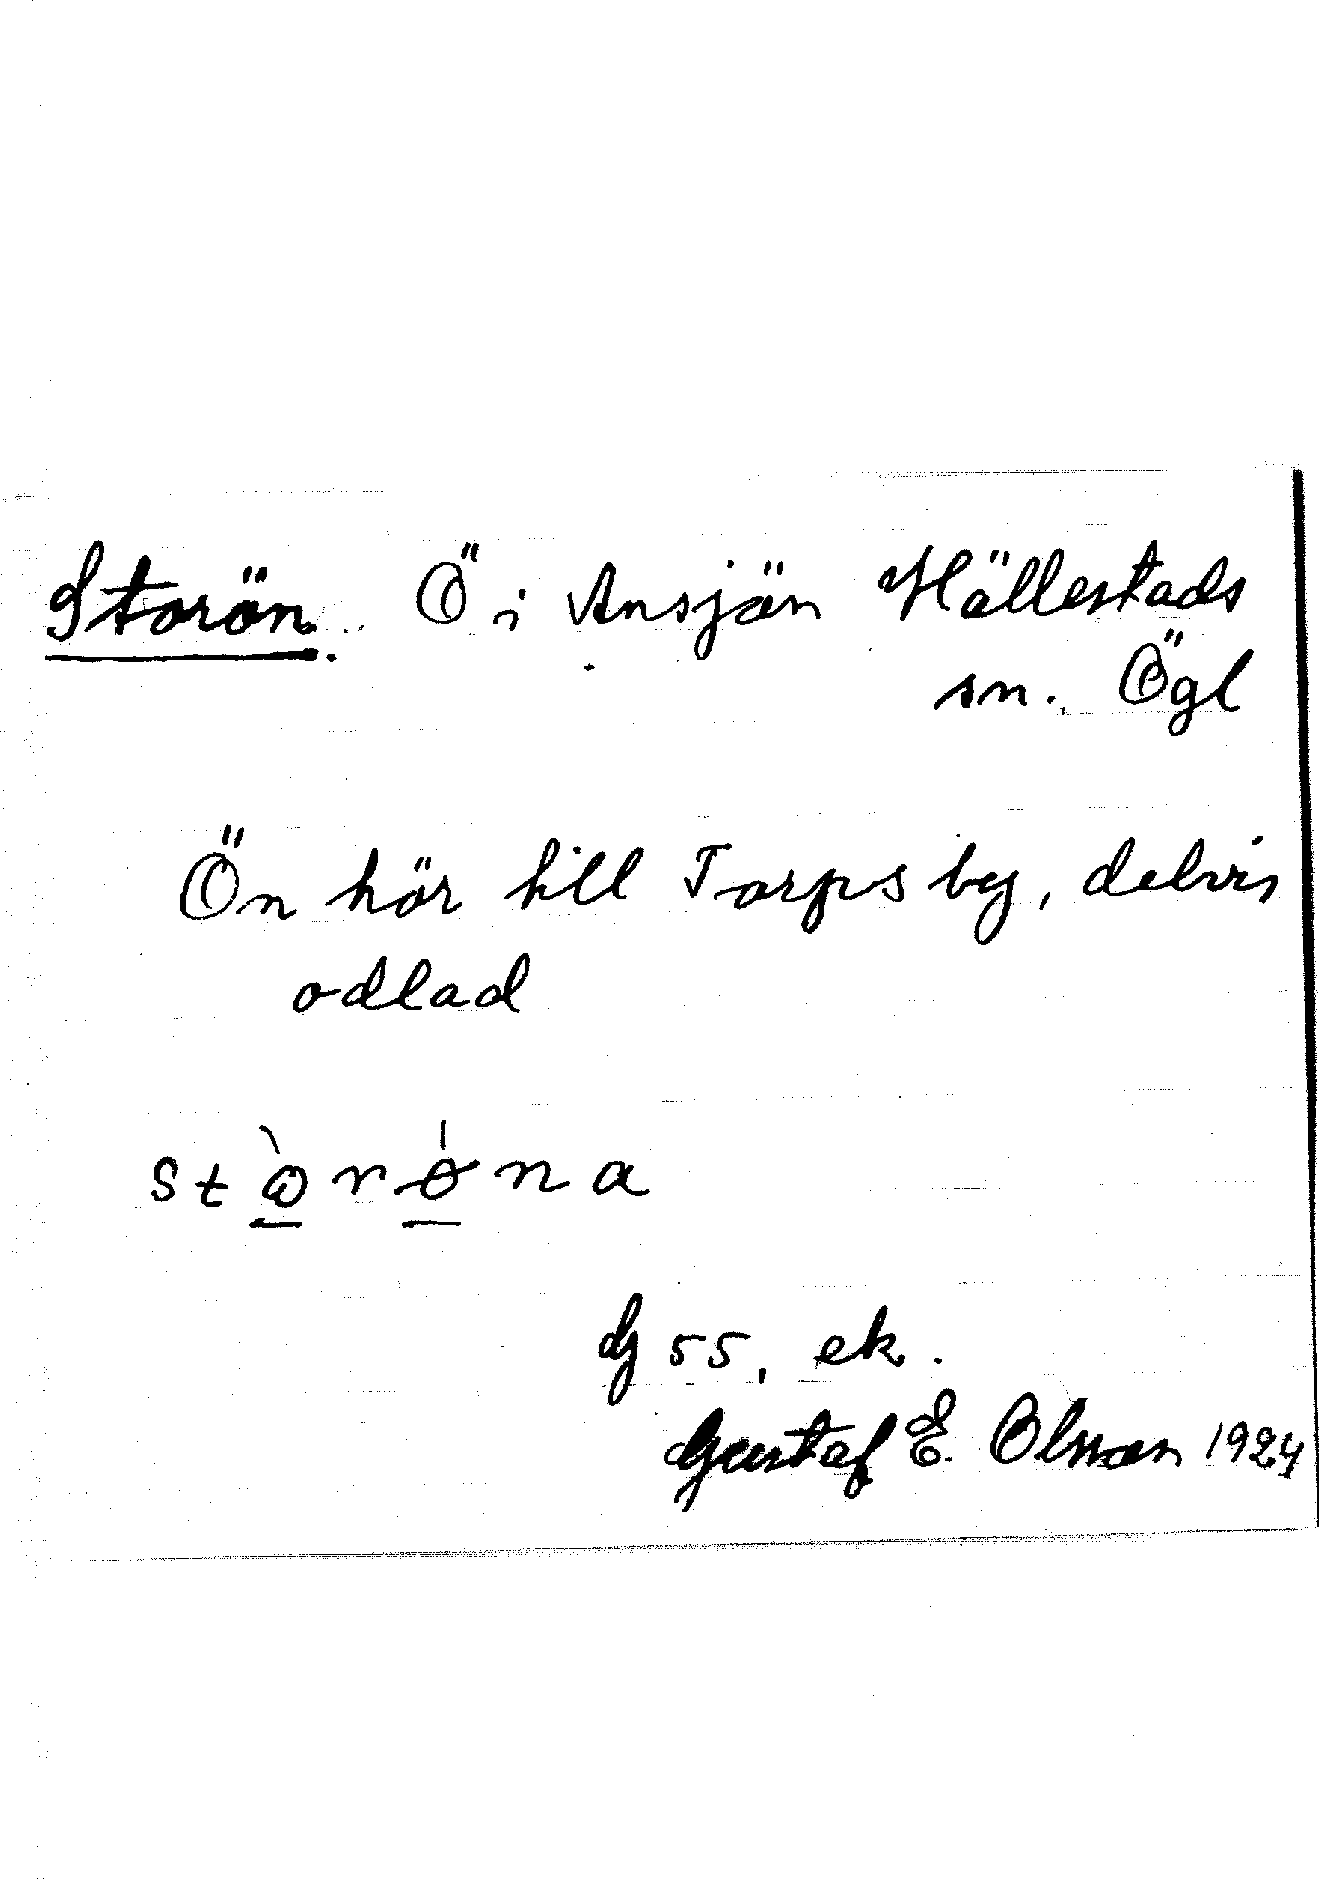 Storön. Ö i Ansjön Hällestads
sn. Ögl
Ön hör till Torps by, delvis
odlad
stὼ̲rǿ̲na
Dg 55, ek.
Gustaf E. Olsson 1924